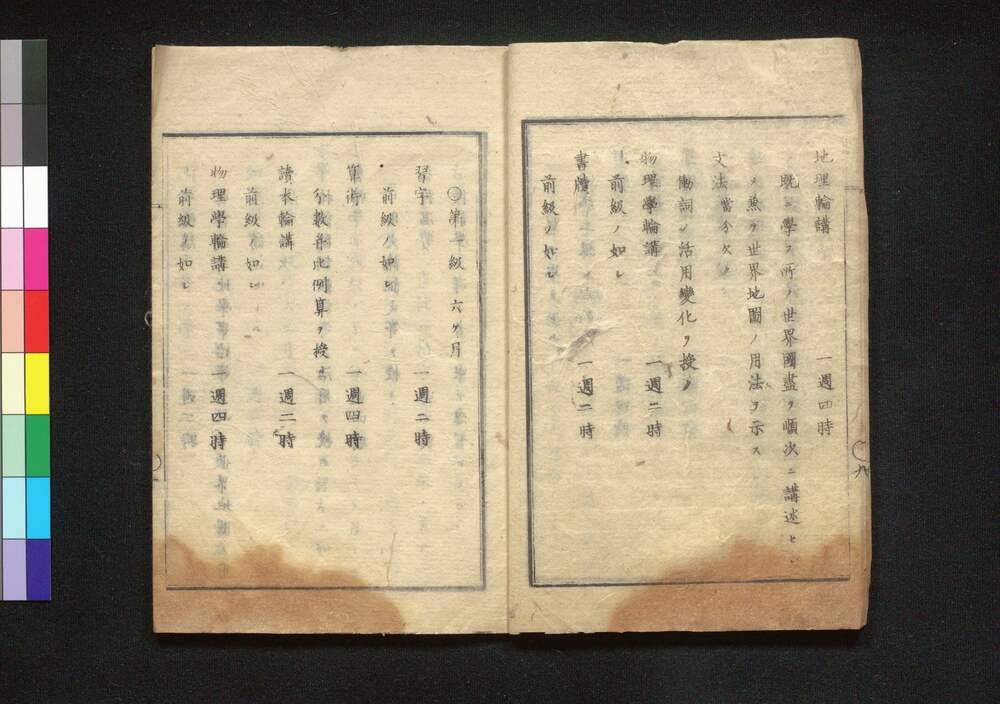 地理輪講 一週四時
既ニ學フ所ノ世界國盡ヲ順次ニ講述セシ
メ兼テ世界地圖ノ用法ヲ示ス
文法當分欠ク
動詞ノ活用變化ヲ授ク
物理學輪講 一週二時
前級ノ如シ
書牘 一週二時
前級ノ如シ
九
〇第 級 六ケ月
習字 一週二時
前級ノ如シ
算術 一週四時
分数 比例算ヲ授
讀本輪講 一週二時
前級ノ如シ
物理學輪講 一週四時
前級ノ如シ